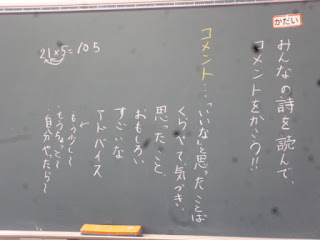 かだい
みんなの詩を読んで、
コメントをかこう!!
コメント…「いいな」と思ったことば
くらべて、気づき、
思ったこと、
おもしろい
すごいな
アドバイス
もう少し〜
もうちょっと〜
自分だったら〜
21×5=105